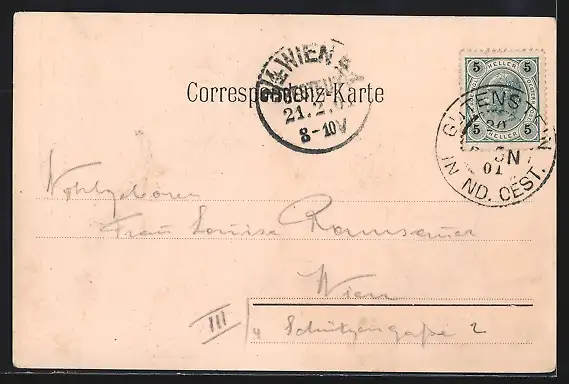 WIEN
BESTELLT
21.2.01
8-10V
Correspondenz-Karte
5 HELLER 5
5 HELLER 5
GUTENSTEIN
20
01
IN ND. OEST.
Wohlgeboren
Frau Louise
Wien
III
Schützengaße 2